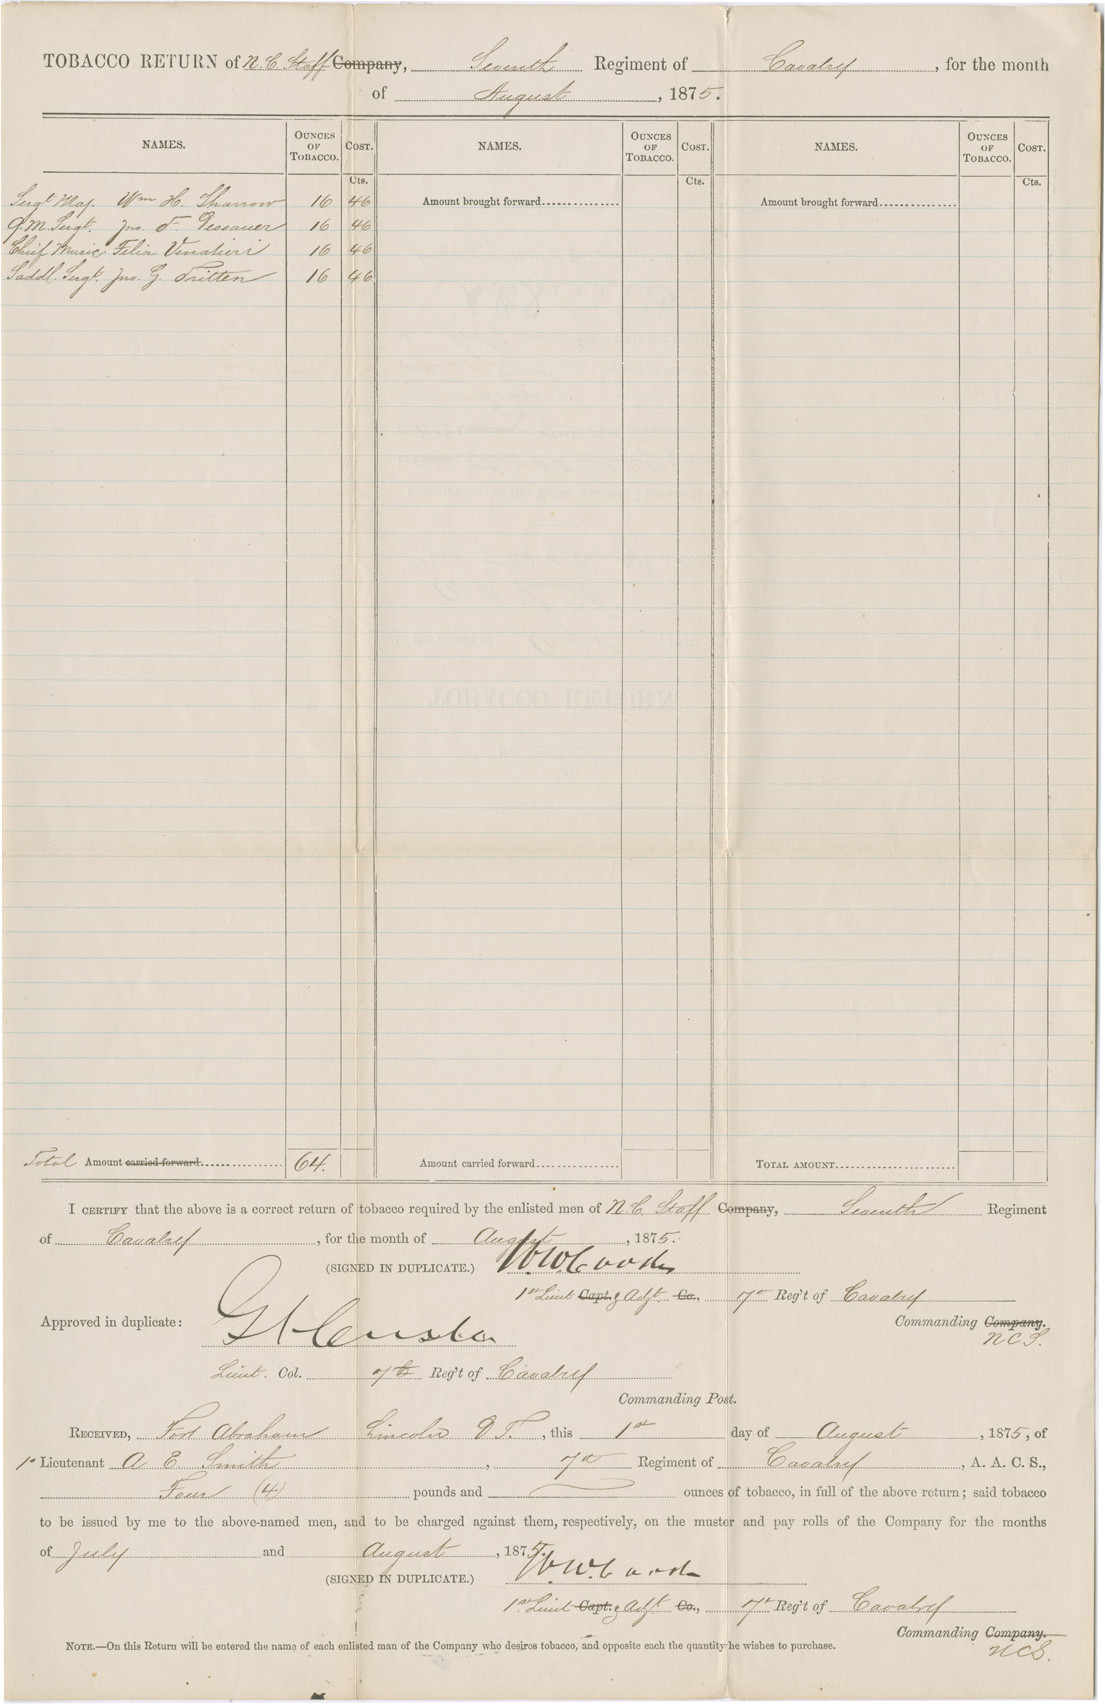 TOBACCO RETURN of N. C. Staff Company, Seventh Regiment of Cavalry, for the month
of August, 1875.
NAMES. OUNCES OF TOBACCO. COST. NAMES. OUNCES OF TOBACCO. COST. NAMES. OUNCES OF TOBACCO. COST.
Cts. Cts. Cts.
Sergt Maj. Wm H. Sharrow 16 46 Amount brought forward Amount brought forward
Q.M. Sergt. Jno. F. 16 46
Chief Music. Felix Vinatieri 16 46
Saddl. Sergt. Jno. G. Tritten 16 46
Total Amount carried forward 64. Amount carried forward TOTAL AMOUNT
I CERTIFY that the above is a correct return of tobacco required by the enlisted men of N. C. Staff Company, Seventh Regiment
of Cavalry, for the month of August, 1875.
(SIGNED IN DUPLICATE.) W.W. Cooke
1st Lieut Capt. & Adjt. Co., 7th Reg't of Cavalry
Approved in duplicate: G A Custer Commanding Company.
N C S.
Lieut. Col. 7th Reg't of Cavalry
Commanding Post.
RECEIVED, Fort Abraham Lincoln D T., this 1st day of August, 1875, of
1st Lieutenant A E. Smith, 7th Regiment of Cavalry, A. A. C. S.,
Four (4) pounds and ounces of tobacco, in full of the above return; said tobacco
to be issued by me to the above-named men, and to be charged against them, respectively, on the muster and pay rolls of the Company for the months
of July and August, 1875.
(SIGNED IN DUPLICATE.) W.W. Cooke
1st Lieut Capt. & Adjt Co., 7th Reg't of Cavalry
Commanding Company.
NCS.
NOTE.—On this Return will be entered the name of each enlisted man of the Company who desires tobacco, and opposite each the quantity he wishes to purchase.